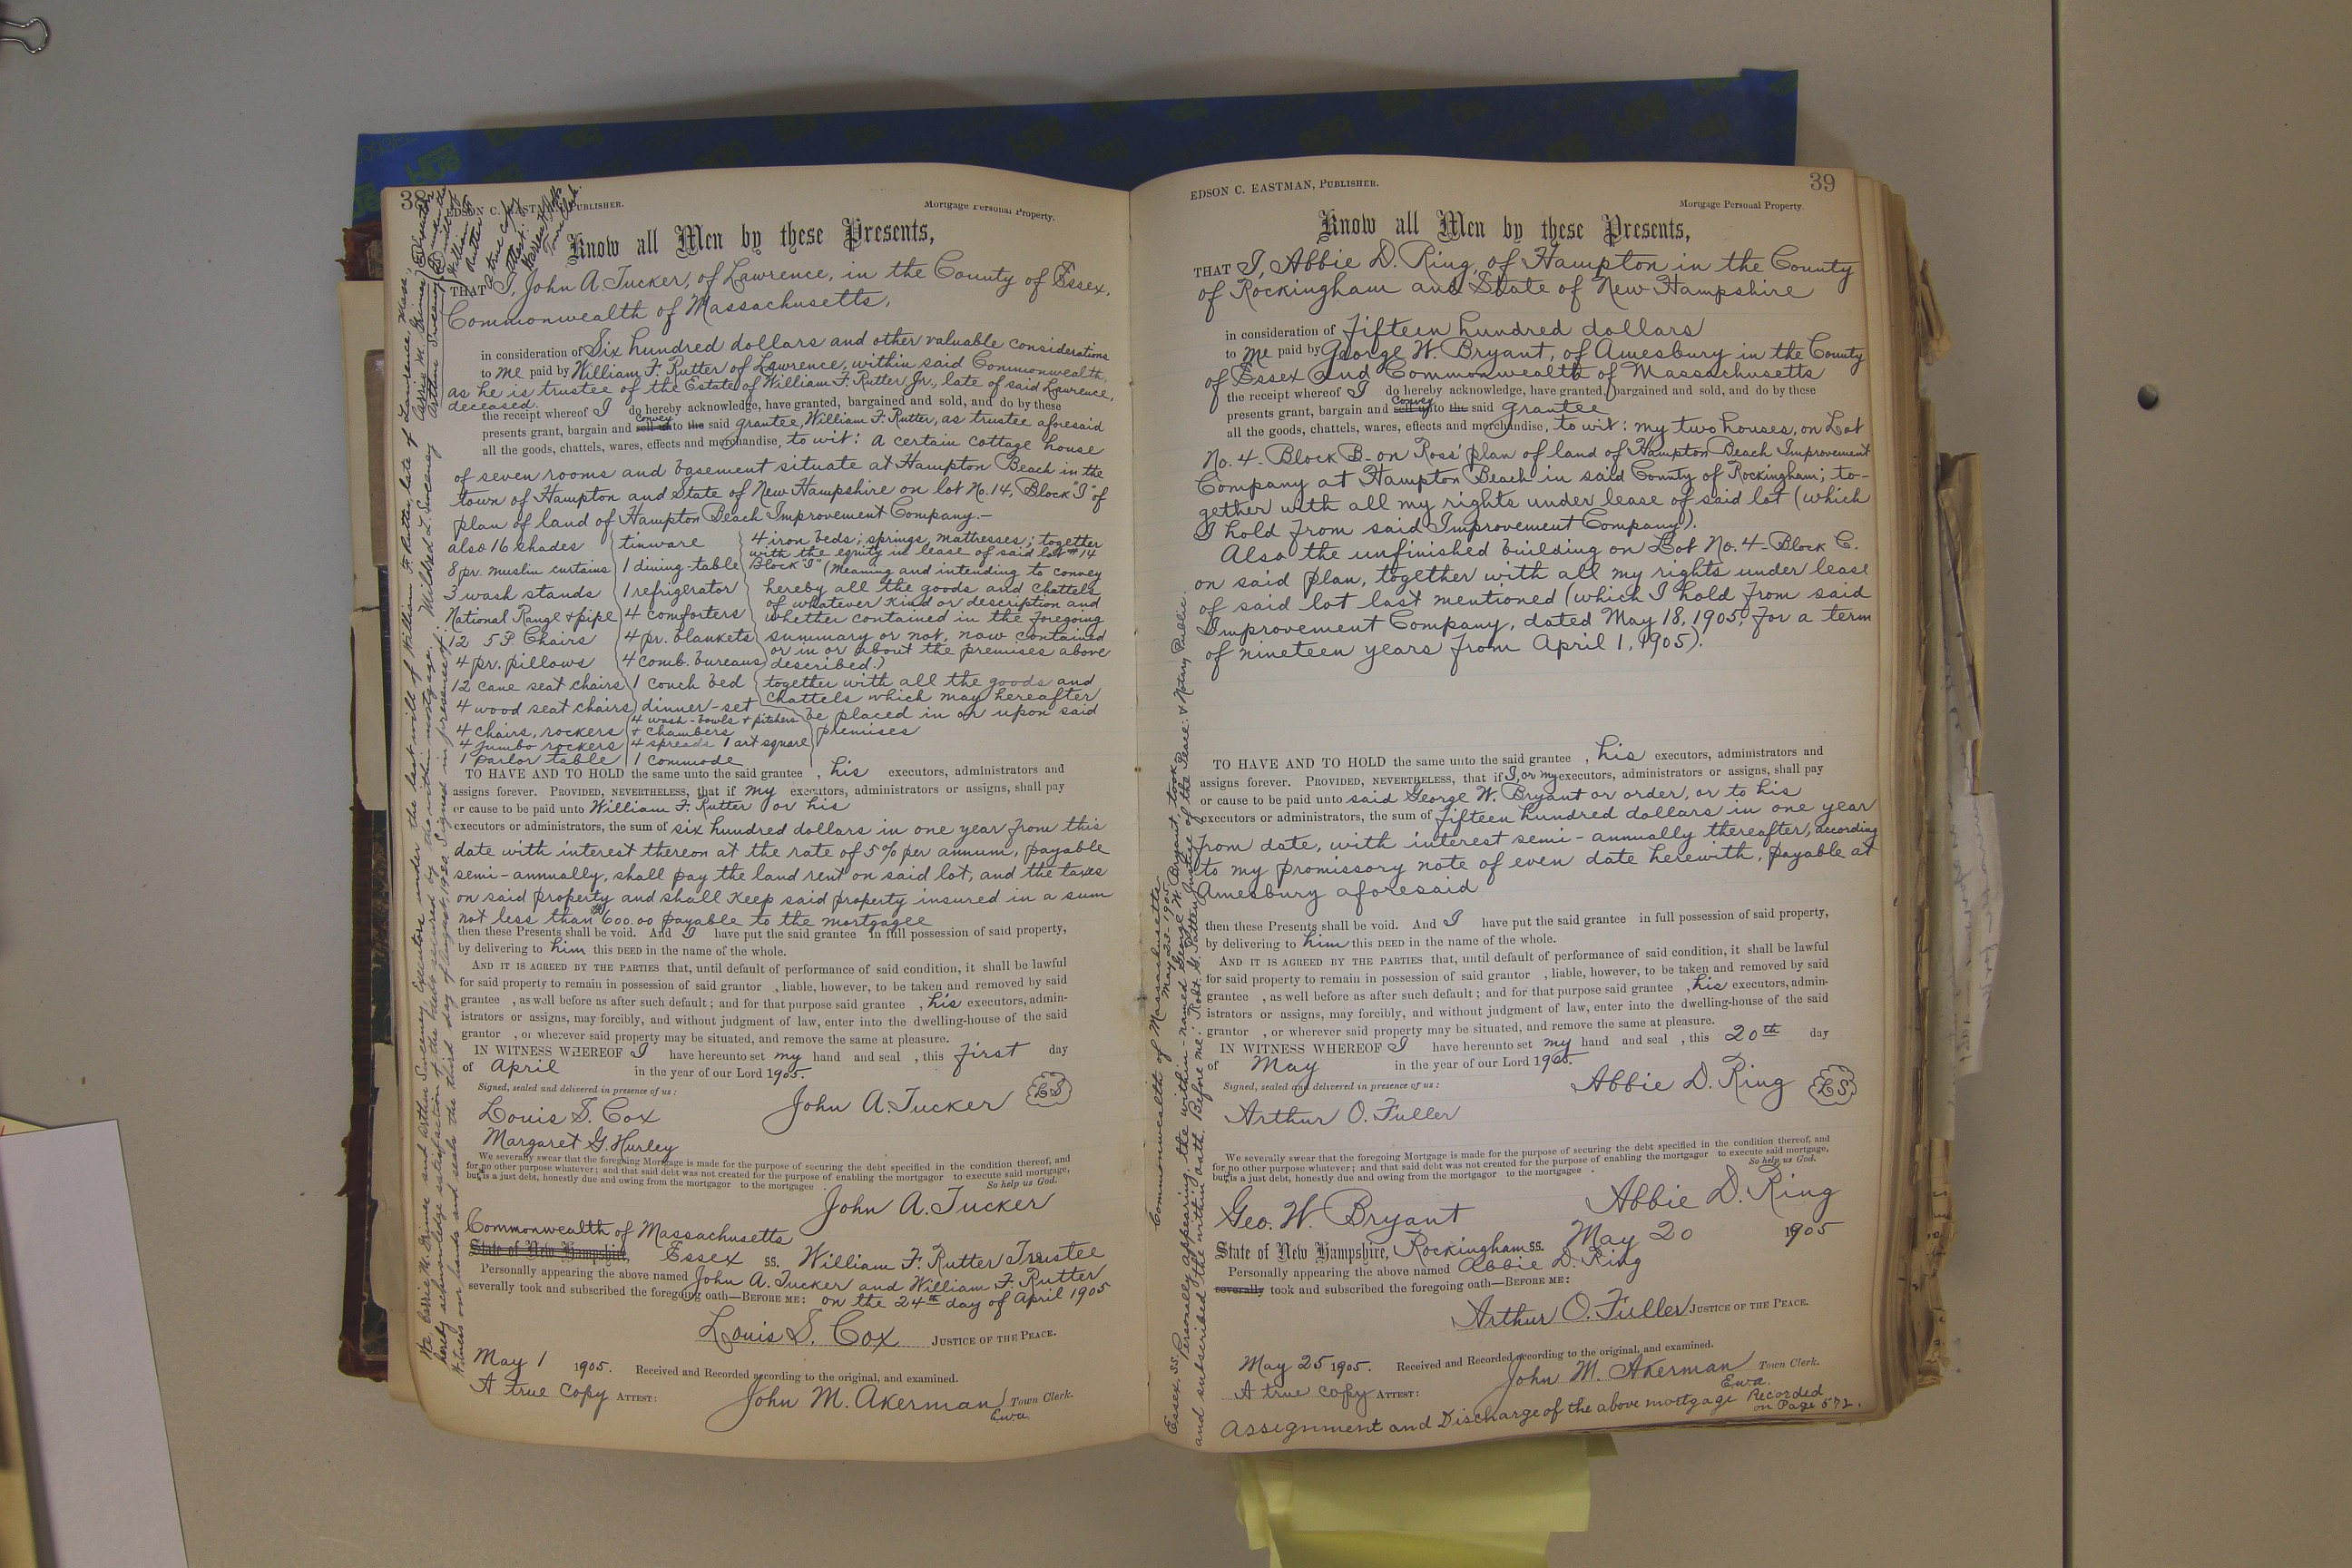 38
EDSON C. EASTMAN, PUBLISHER.
Mortgage Personal Property.
Know all Men by these Presents,
THAT I, John A. Tucker, of Lawrence, in the County of Essex,
Commonwealth of Massachusetts,
in consideration of Six hundred dollars and other valuable considerations
to me paid by William F. Rutter of Lawrence, within said Commonwealth,
as he is trustee of the Estate of William F. Rutter, Jr., late of said Lawrence,
deceased.
the receipt whereof I do hereby acknowledge, have granted, bargained and sold, and do by these
convey
presents grant, bargain and sell unto the said grantee, William F. Rutter, as trustee aforesaid
all the goods, chattels, wares, effects and merchandise, to wit: a certain cottage house
of seven rooms and basement situate at Hampton Beach in the
town of Hampton and State of New Hampshire on lot No. 14, Block "I" of
plan of land of Hampton Beach Improvement Company.—
also 16 shades
8 pr. muslin curtains
3 wash stands
National Range & pipe
12 5 P. Chairs
4 pr. pillows
12 cane seat chairs
4 wood seat chairs
4 chairs, rockers
4 Jumbo rockers
1 parlor table
tinware
1 dining-table
1 refrigerator
4 comforters
4 pr. blankets
4 comb. bureaus
1 couch bed
dinner-set
4 wash-bowls & pitchers
& chambers
4 spreads 1 art square
1 commode
4 iron beds; springs, mattresses; together
with the equity in lease of said lot #14
Block "I" (Meaning and intending to convey
hereby all the goods and chattels
of whatever kind or description and
whether contained in the foregoing
summary or not, now contained
or in or about the premises above
described.)
together with all the goods and
chattels which may hereafter
be placed in or upon said
premises
TO HAVE AND TO HOLD the same unto the said grantee , his executors, administrators and
assigns forever. PROVIDED, NEVERTHELESS, that if my executors, administrators or assigns, shall pay
or cause to be paid unto William F. Rutter or his
executors or administrators, the sum of six hundred dollars in one year from this
date with interest thereon at the rate of 5% per annum, payable
semi-annually, shall pay the land rent on said lot, and the taxes
on said property and shall keep said property insured in a sum
not less than $600.00 payable to the mortgagee
then these Presents shall be void. And I have put the said grantee in full possession of said property,
by delivering to him this DEED in the name of the whole.
AND IT IS AGREED BY THE PARTIES that, until default of performance of said condition, it shall be lawful
for said property to remain in possession of said grantor , liable, however, to be taken and removed by said
grantee , as well before as after such default; and for that purpose said grantee , his executors, admin-
istrators or assigns, may forcibly, and without judgment of law, enter into the dwelling-house of the said
grantor , or wherever said property may be situated, and remove the same at pleasure.
IN WITNESS WHEREOF I have hereunto set my hand and seal , this first day
of April in the year of our Lord 1905.
Signed, sealed and delivered in presence of us:
Louis S. Cox
John A. Tucker LS
Margaret G. Hurley
We severally swear that the foregoing Mortgage is made for the purpose of securing the debt specified in the condition thereof, and
for no other purpose whatever; and that said debt was not created for the purpose of enabling the mortgagor to execute said mortgage,
but is a just debt, honestly due and owing from the mortgagor to the mortgagee . So help us God.
John A. Tucker
Commonwealth of Massachusetts
State of New Hampshire, Essex ss. William F. Rutter Trustee
Personally appearing the above named John A. Tucker and William F. Rutter
severally took and subscribed the foregoing oath—BEFORE ME: on the 24th day of April 1905
Louis S. Cox JUSTICE OF THE PEACE.
May 1 1905. Received and Recorded according to the original, and examined.
A true copy ATTEST: John M. Akerman Town Clerk.
Ewa.
We, Carrie M. Grimes and Arthur Sweeney, Executors under the last will of William F. Rutter, late of Lawrence, Mass.,
hereby acknowledge satisfaction of the debt secured by the within mortgage.
Witness our hands and seals the third day of August, 1920. Signed in presence of: Mildred L. Sweeney
Carrie M. Grimes
Arthur Sweeney
Executors
under the
will of
William F.
Rutter
A true copy
Attest:
Town Clerk.
39
EDSON C. EASTMAN, PUBLISHER.
Mortgage Personal Property.
Know all Men by these Presents,
THAT I, Abbie D. Ring, of Hampton in the County
of Rockingham and State of New Hampshire
in consideration of fifteen hundred dollars
to me paid by George W. Bryant, of Amesbury in the County
of Essex and Commonwealth of Massachusetts
the receipt whereof I do hereby acknowledge, have granted, bargained and sold, and do by these
convey
presents grant, bargain and sell unto the said grantee
all the goods, chattels, wares, effects and merchandise, to wit: my two houses, on Lot
No. 4- Block B- on Ross' plan of land of Hampton Beach Improvement
Company at Hampton Beach in said County of Rockingham; to-
gether with all my rights under lease of said lot (which
I hold from said Improvement Company).
Also the unfinished building on Lot No. 4- Block C.
on said plan, together with all my rights under lease
of said lot last mentioned (which I hold from said
Improvement Company, dated May 18, 1905, for a term
of nineteen years from April 1, 1905).
TO HAVE AND TO HOLD the same unto the said grantee , his executors, administrators and
assigns forever. PROVIDED, NEVERTHELESS, that if I, or my executors, administrators or assigns, shall pay
or cause to be paid unto said George W. Bryant or order, or to his
executors or administrators, the sum of fifteen hundred dollars in one year
from date, with interest semi-annually thereafter, according
to my promissory note of even date herewith, payable at
Amesbury aforesaid
then these Presents shall be void. And I have put the said grantee in full possession of said property,
by delivering to him this DEED in the name of the whole.
AND IT IS AGREED BY THE PARTIES that, until default of performance of said condition, it shall be lawful
for said property to remain in possession of said grantor , liable, however, to be taken and removed by said
grantee , as well before as after such default; and for that purpose said grantee , his executors, admin-
istrators or assigns, may forcibly, and without judgment of law, enter into the dwelling-house of the said
grantor , or wherever said property may be situated, and remove the same at pleasure.
IN WITNESS WHEREOF I have hereunto set my hand and seal , this 20th day
of May in the year of our Lord 1905.
Signed, sealed and delivered in presence of us:
Abbie D. Ring LS
Arthur O. Fuller
We severally swear that the foregoing Mortgage is made for the purpose of securing the debt specified in the condition thereof, and
for no other purpose whatever; and that said debt was not created for the purpose of enabling the mortgagor to execute said mortgage,
but is a just debt, honestly due and owing from the mortgagor to the mortgagee . So help us God.
Geo. W. Bryant Abbie D. Ring
State of New Hampshire, Rockingham ss. May 20 1905
Personally appearing the above named Abbie D. Ring
severally took and subscribed the foregoing oath—BEFORE ME:
Arthur O. Fuller JUSTICE OF THE PEACE.
May 25 1905. Received and Recorded according to the original, and examined.
A true copy ATTEST: John M. Akerman Town Clerk.
Ewa.
Assignment and Discharge of the above mortgage Recorded
on Page 572.
Commonwealth of Massachusetts
Essex, SS. May 23- 1905
Personally appearing the within-named George W. Bryant, took
and subscribed the within oath. Before me: Robt. G. Patten Justice of the Peace & Notary Public.